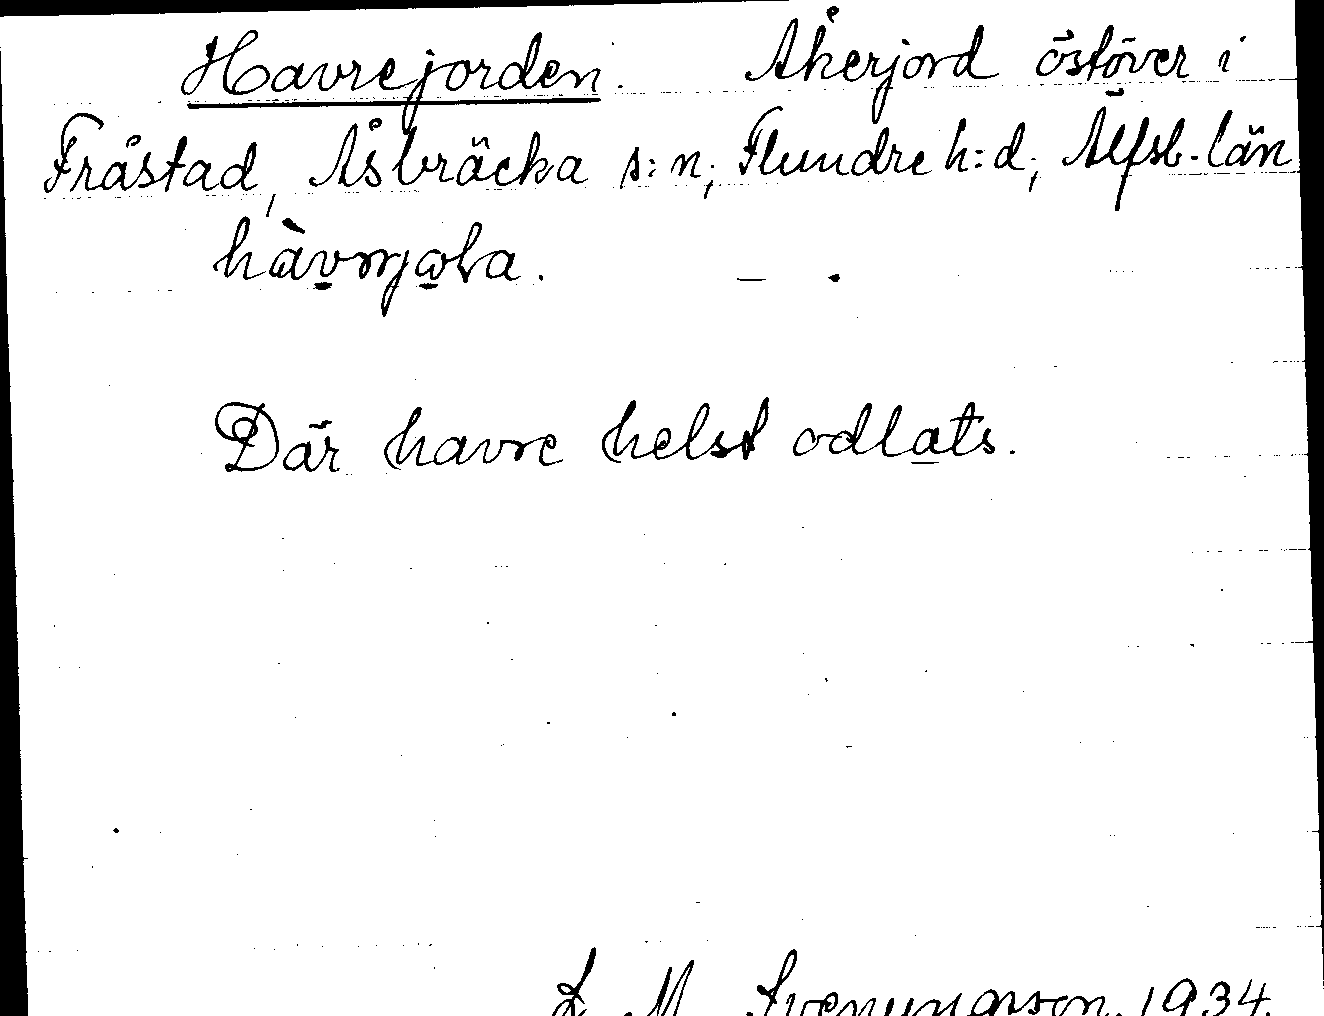 Havrejorden. Åkerjord östöver i
Fråstad, Åsbräcka s:n; Flundre h:d; Älfsb. län
Där havre helst odlats.
L. M. Svenungsson. 1934.